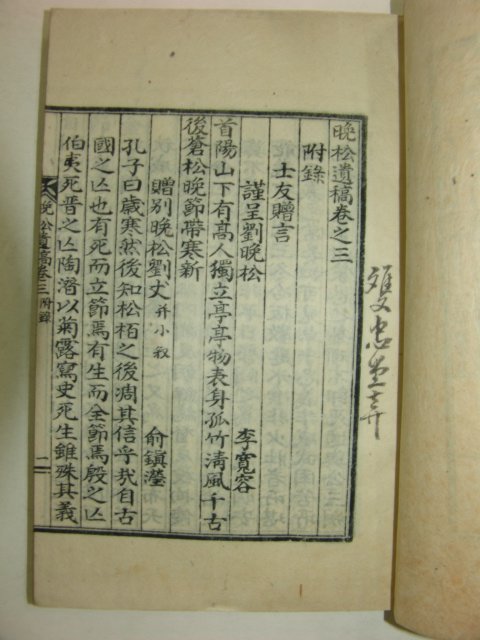 晚松遺稿卷之三
附錄
士友贈言
謹呈劉晚松
李寬容
首陽山下有高人獨立亭亭物表身孤竹清風千古
後蒼松晚節帶寒新
贈別晚松劉丈 并小敘
俞鎭瀅
孔子曰歲寒然後知松栢之後凋其信乎哉自古
國之亾也有死而立節焉有生而全節焉殷之亾
伯夷死晋之亾陶潛以菊露寫史死生雖殊其義
晚松遺稿卷三 附錄
一